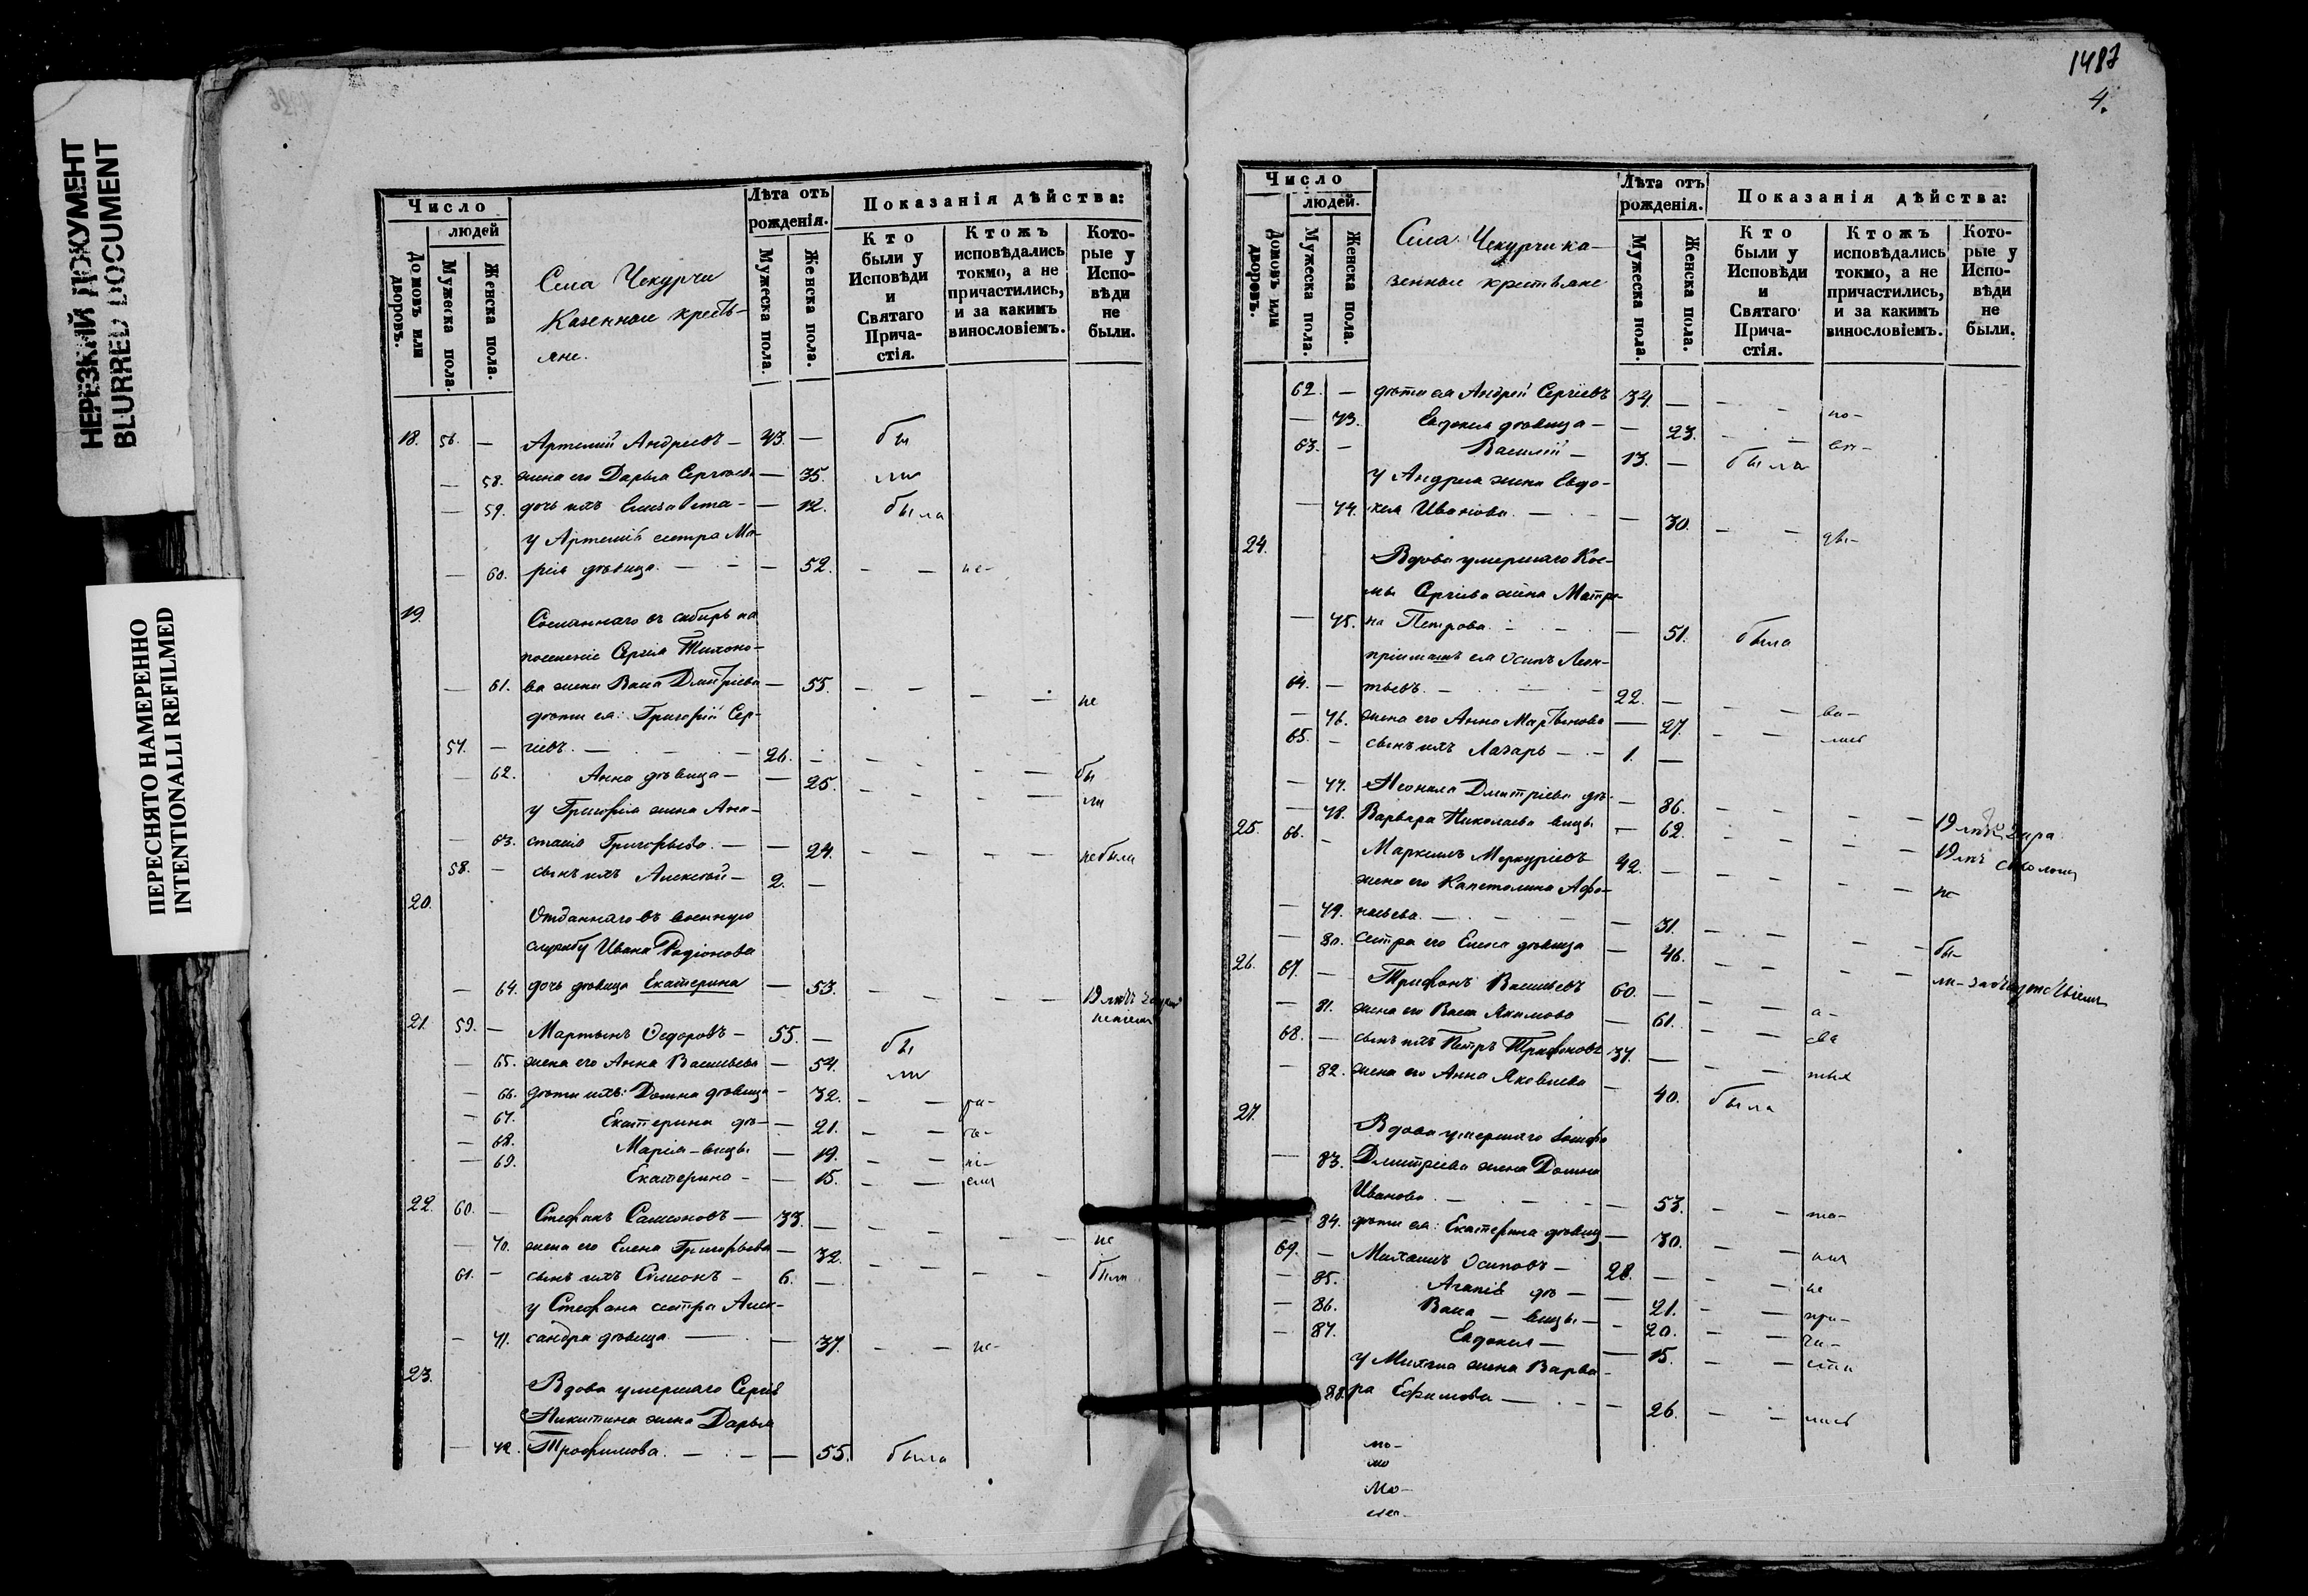 1487
4.
НЕРЕЗКИЙ ДОКУМЕНТ
BLURRED DOCUMENT
ПЕРЕСНЯТО НАМЕРЕННО
INTENTIONALLI REFILMED
Число
людей
Домовъ или дворовъ.
Мужеска пола.
Женска пола.
Села Чекурчи
Казенные кресть-
яне.
Лѣта отъ рожденія.
Мужеска пола.
Женска пола.
Показанія дѣйства:
Кто были у Исповѣди и Святаго Прича-стія.
Ктожъ исповѣдались токмо, а не причастились, и за какимъ винословіемъ.
Кото-рые у Испо-вѣди не были.
18. 56. — Артемій Андреевъ — 43. — бы
— 58. жена его Дарья Сергѣева — 35. ли
— 59. дочь ихъ Елизавета — — 12. была
у Артемія сестра Ма-
— 60. рія дѣвица. — — — 52. — — не-
19. Сосланнаго въ сибирь на
поселеніе Сергія Тихоно-
— 61. ва жена Васа Дмитріева — 55. — — — — не
дѣти ея: Григорій Сер-
57. — гіевъ. — — — 26. — — — — —
— 62. Анна дѣвица — — 25. — — — — бы
у Григорія жена Ана- ли
— 63. стасія Григорьева. — — 24. — — — — не была
58. — сынъ ихъ Алексѣй — 2. —
20. Отданнаго въ военную
службу Ивана Родіонова
— 64. дочь дѣвица Екатерина — 53. — — — — 19 лѣтъ
21. 59. — Мартынъ Ѳедоровъ — 55. — бы
— 65. жена его Анна Васильева — 54. ли
— 66. дѣти ихъ: Домна дѣвица — 32. — — ра-
— 67. Екатерина дѣ- — 21. — —
— 68. Марія — вицы — 19. — —
— 69. Екатерина — — 15. — —
22. 60. — Стефанъ Самсоновъ — 33. — — — — — не
— 70. жена его Елена Григорьева — 32. — — — —
61. — сынъ ихъ Симеонъ — 6. — были
у Стефана сестра Алек-
— 71. сандра дѣвица. — — 37. — — не-
23. Вдова умершаго Сергія
Никитина жена Дарья
— 72. Трофимова. — — — 55. была
Число
людей.
Домовъ или дворовъ.
Мужеска пола.
Женска пола.
Села Чекурчи ка-
зенные крестьяне
Лѣта отъ рожденія.
Мужеска пола.
Женска пола.
Показанія дѣйства:
Кто были у Исповѣди и Святаго Прича-стія.
Ктожъ исповѣдались токмо, а не причастились, и за какимъ винословіемъ.
Кото-рые у Испо-вѣди не были.
62. — дѣти ея Андрей Сергіевъ 34. — — —
— 73. Евдокія дѣвица — — 23. — —
63. — Василій — 13. — была
у Андрея жена Евдо-
— 74. кія Иванова. — — — 30. — —
24. Вдова умершаго Кос-
мы Сергіева жена Матре-
— 75. на Петрова. — — — 51. была
пріимашъ ея Осипъ Леон-
64. — тьевъ. — — — 22. — — — ва-
— 76. жена его Анна Мартынова — 27. — — лись
65. — сынъ ихъ Лазарь — — 1. —
— 77. Неонила Дмитріева дѣ- — 86. — — — —
— 78. Варвара Николаева вицы — 62. — — — — 19 лѣтъ
25. 66. — Маркеллъ Меркуріевъ 42. — — — — — не
жена его Капетолина Афо-
— 79. насьева. — — — — 31. — — — — бы-
— 80. сестра его Елена дѣвица — 46. — — — — ли
26. 67. — Трифонъ Васильевъ 60. — — — а-
— 81. жена его Васса Акимова — 61. — —
68. — сынъ ихъ Петръ Трифоновъ 37. — — —
— 82. жена его Анна Яковлева — 40. была
27. Вдова умершаго Іосифа
— 83. Дмитріева жена Домна
Иванова. — — — — 53. — —
— 84. дѣти ея: Екатерина дѣвица — 30. — —
69. — Михаилъ Осиповъ — 28. — — — не
— 85. Агапія дѣ — — 21. — — при-
— 86. Васа — вицы — — 20. — — ча-
— 87. Евдокія — — 15. — — сти
у Михаила жена Варва-
— 88. ра Ефимова — — — 26. — — лись